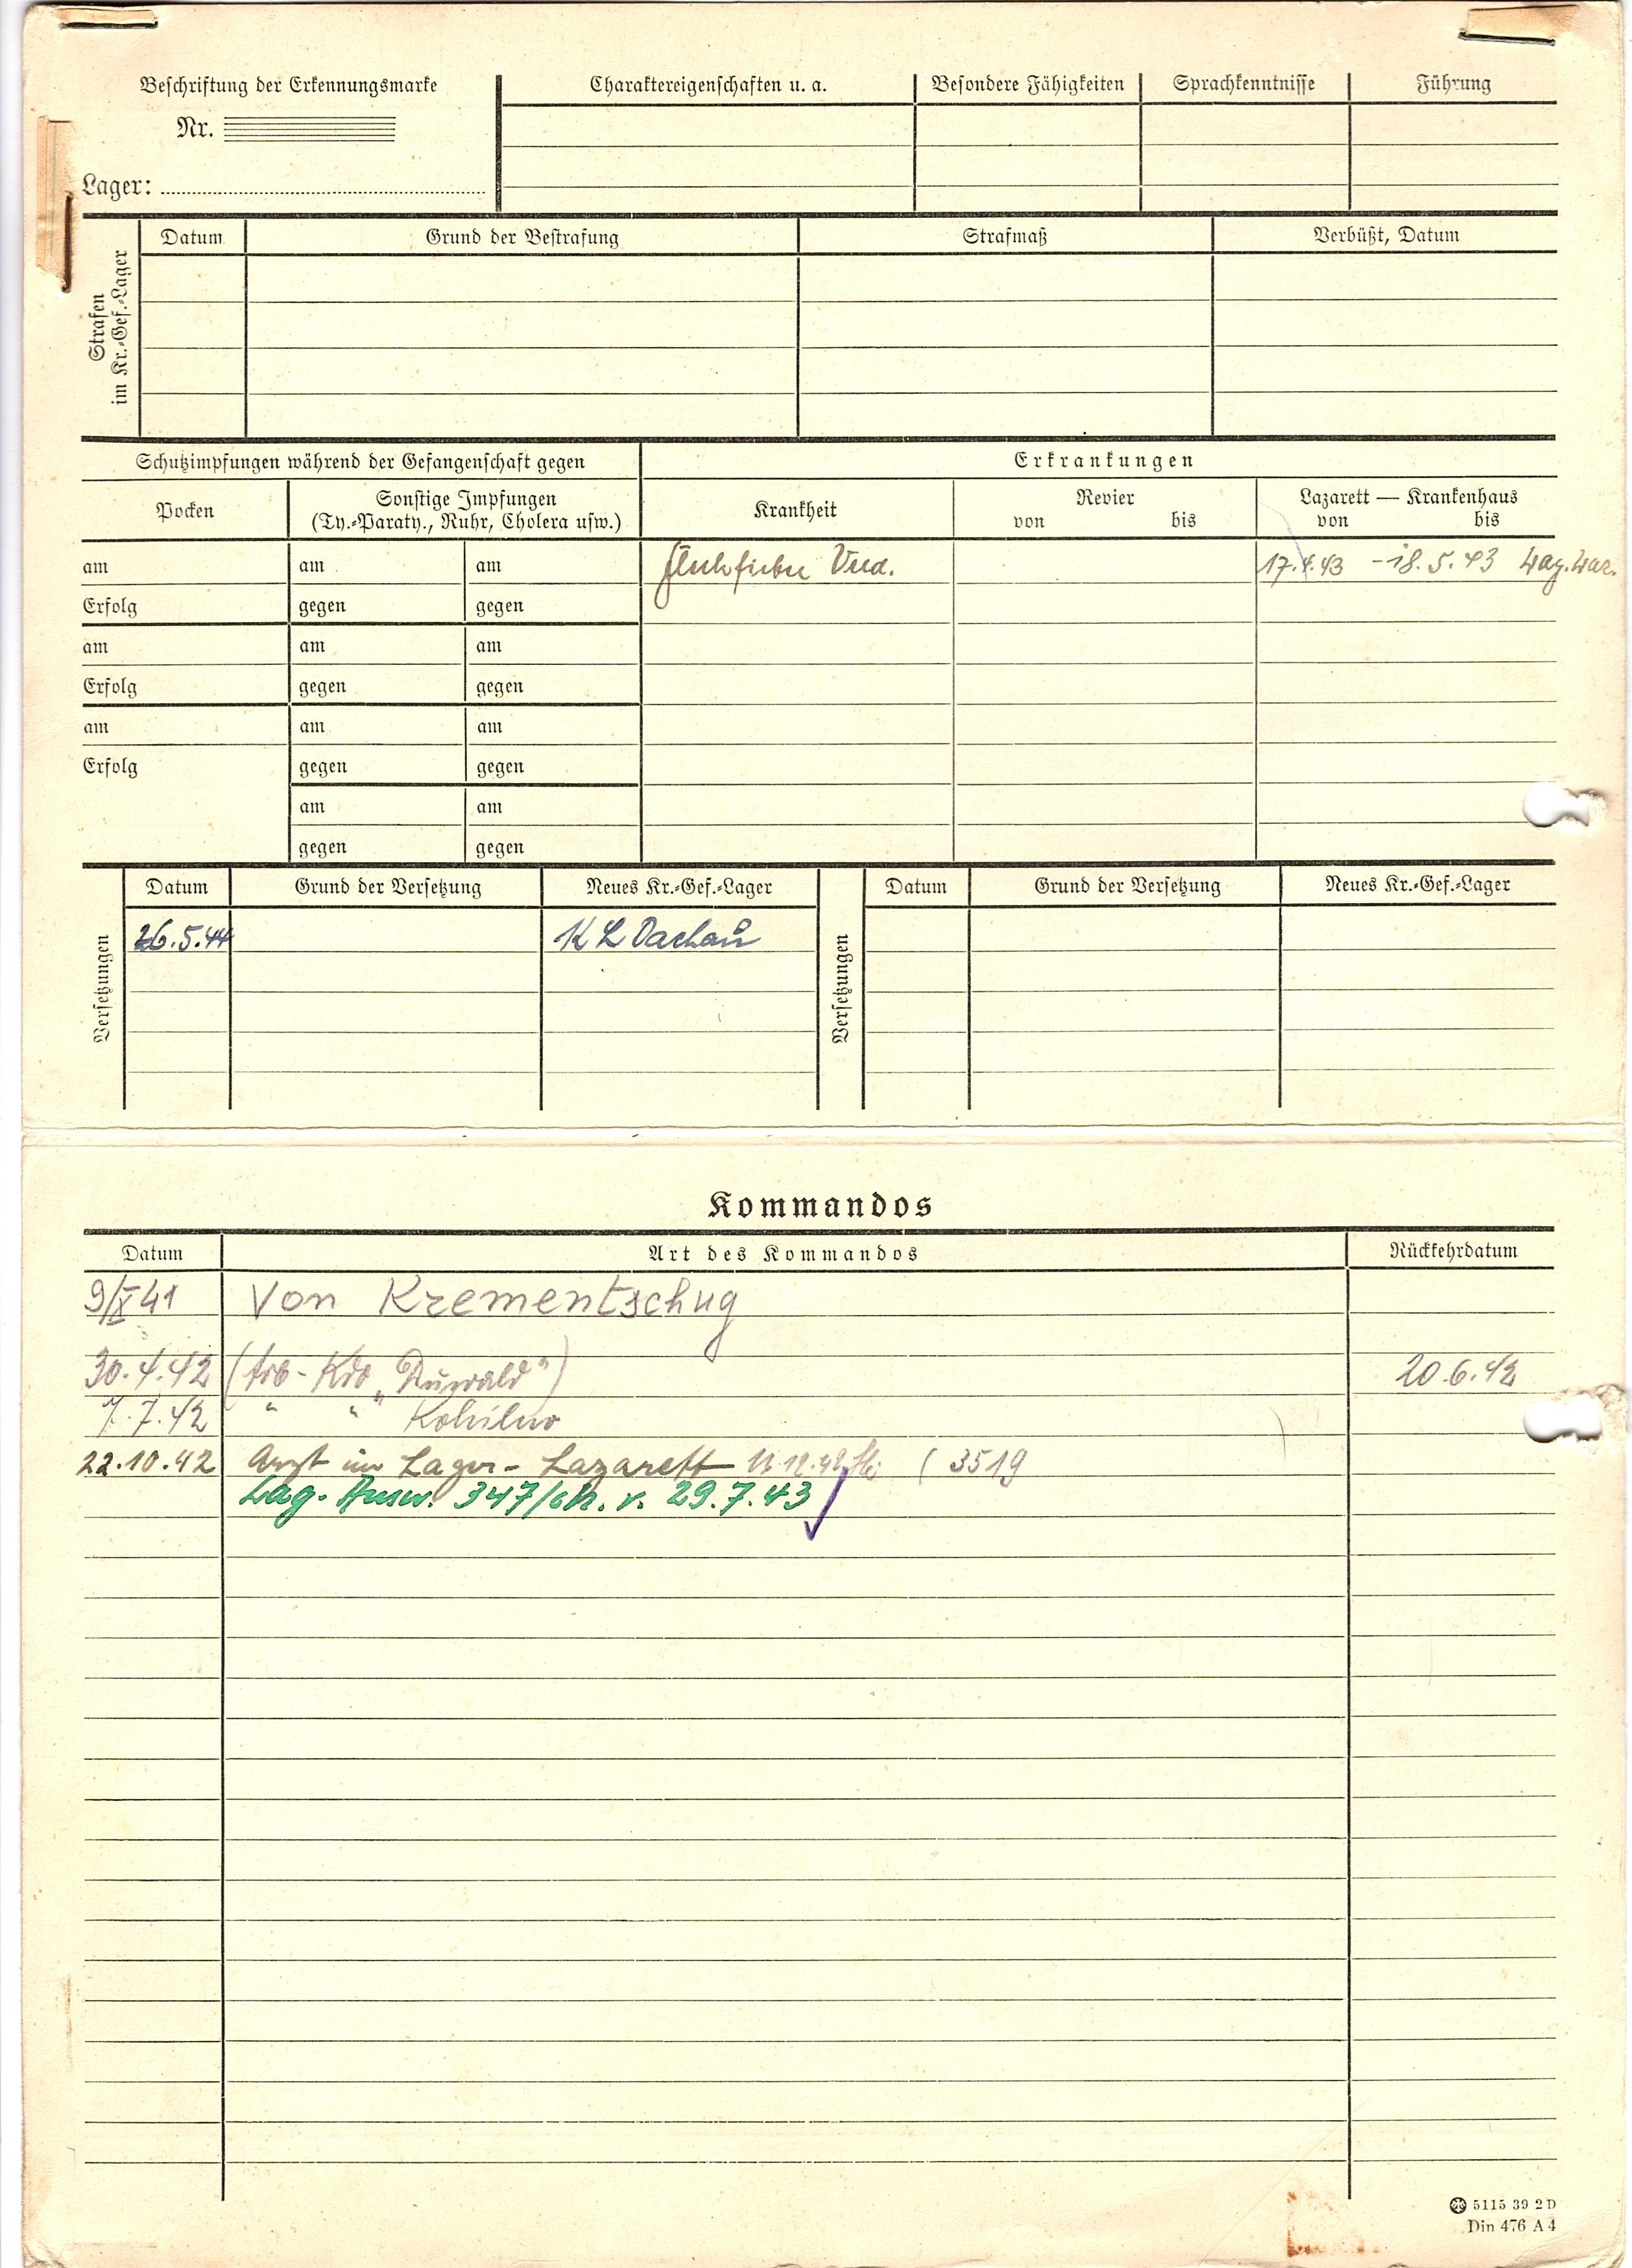 Beschriftung der Erkennungsmarke
Nr.
Lager:
Charaktereigenschaften u. a.
Besondere Fähigkeiten
Sprachkenntnisse
Führung
Strafen
im Kr.-Gef.-Lager
Datum
Grund der Bestrafung
Strafmaß
Verbüßt, Datum
Schutzimpfungen während der Gefangenschaft gegen
Erkrankungen
Pocken
Sonstige Impfungen
(Ty.-Paraty., Ruhr, Cholera usw.)
Krankheit
Revier
von bis
Lazarett — Krankenhaus
von bis
am am am
17.4.43 - 18.5.43
Erfolg gegen gegen
am am am
Erfolg gegen gegen
am am am
Erfolg gegen gegen
am am
gegen gegen
Versetzungen
Datum Grund der Versetzung Neues Kr.-Gef.-Lager
26.5.44 KL Dachau
Versetzungen
Datum Grund der Versetzung Neues Kr.-Gef.-Lager
Kommandos
Datum Art des Kommandos Rückkehrdatum
9/X 41 Von Krementschug
30.4.42 (Arb-Kdo 20.6.42
7.7.42 " "
22.10.42 Arzt im Lager-Lazarett ( 3519
Lag. Ausw. 347/ v. 29.7.43
5115 39 2 D
Din 476 A 4